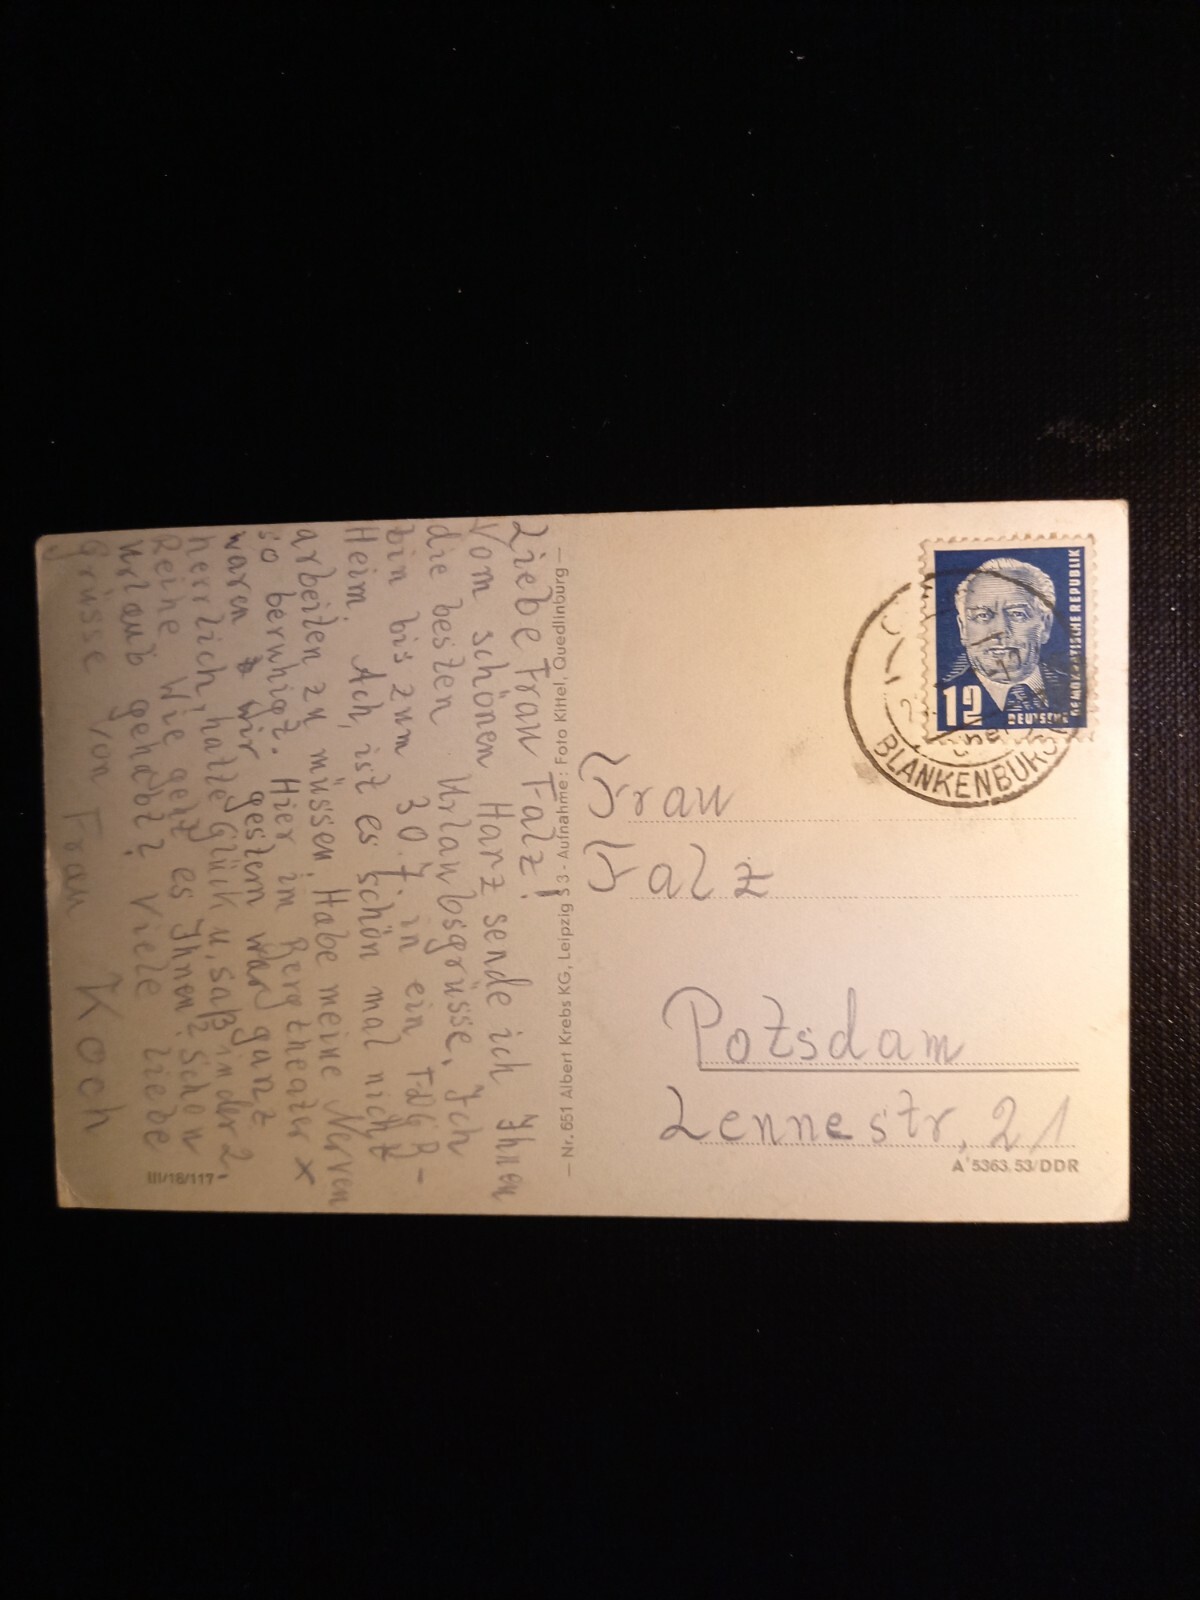 Liebe Frau Falz!
Vom schönen Harz sende ich Ihnen
die besten Urlaubsgrüsse. Ich
bin bis zum 30.7. in ein FDGB-
Heim. Ach, ist es schön mal nicht
arbeiten zu müssen. Habe meine Nerven
so beruhigt. Hier im Bergtheater x
waren wir gestern war ganz
herrlich, hatte Glück u. saß in der 2.
Reihe Wie geht es Ihnen? Schon
Urlaub gehabt? Viele liebe
Grüsse von Frau Koch
III/18/117
— Nr. 651 Albert Krebs KG, Leipzig S 3 - Aufnahme: Foto Kittel, Quedlinburg —
12
DEUTSCHE
DEMOKRATISCHE REPUBLIK
BLANKENBURG
Frau
Falz
Potsdam
Lennestr. 21
A 5363.53/DDR